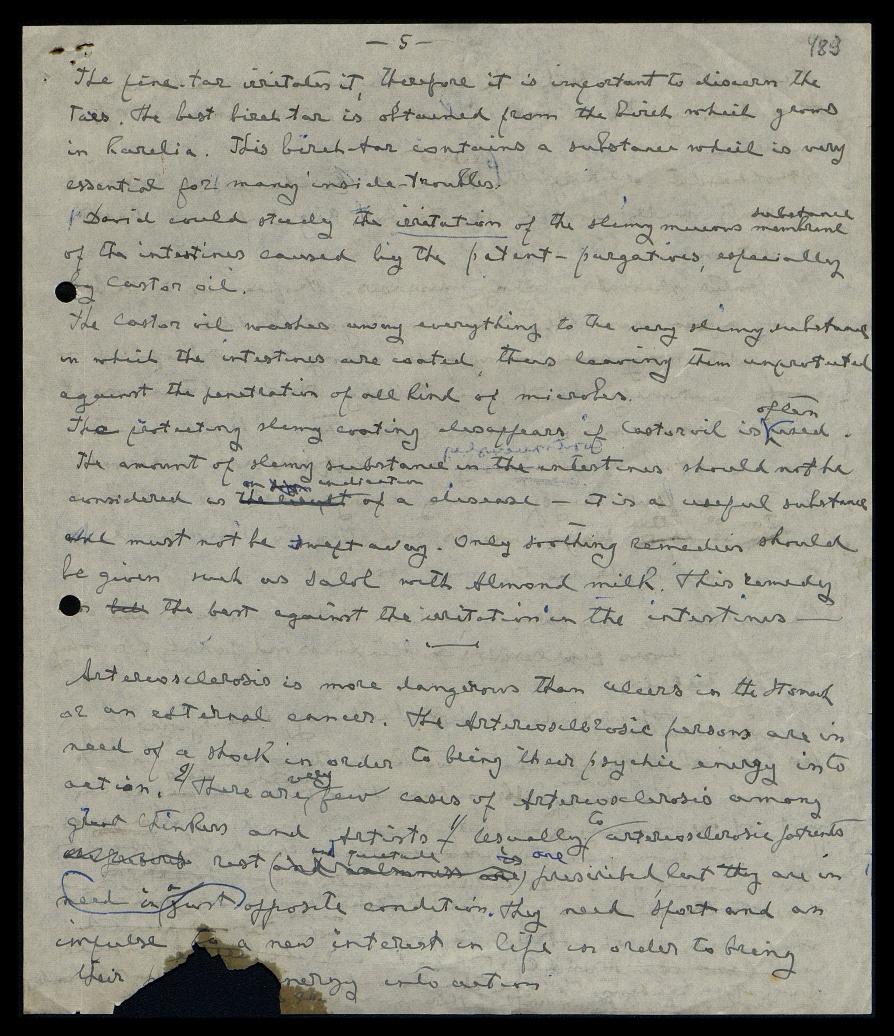 — 5 —
489
The pine-tar irritates it, therefore it is important to discern the
Tars. The best birch tar is obtained from the birch which grows
in Karelia. This birch-tar contains a substance which is very
essential for many inside-troubles.
David could study the irritation of the slimy mucous membrane substance
of the intestines caused by the patent-purgatives, especially
by Castor oil.
The Castor oil washes away everything to the very slimy substance
in which the intestines are coated, thus leaving them unprotected
against the penetration of all kind of microbes.
often
The protecting slimy coating disappears if Castor oil is used.
The amount of slimy substance in the intestines should not be
an indication
considered as the result of a disease — it is a useful substance
and must not be swept away. Only soothing remedies should
be given such as Salol with Almond milk. This remedy
is the best against the irritation in the intestines —
Arteriosclerosis is more dangerous than ulcers in the stomach
or an external cancer. The Arteriosclerosic persons are in
need of a shock in order to bring their psychic energy into
very
action. There are few cases of Arteriosclerosis among
great thinkers and Artists. Usually to arteriosclerosic patients
and quietude is are
rest (and calmness are) prescribed but they are in
need in a just opposite condition. They need sport and an
impulse to a new interest in life in order to bring
their energy into action